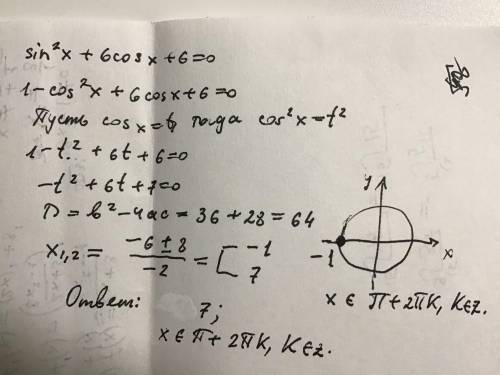 sin²x + 6cosx + 6 = 0
1 - cos²x + 6cosx + 6 = 0
Пусть cosx = t, тогда cos²x = t²
1 - t² + 6t + 6 = 0
-t² + 6t + 7 = 0
D = b² - 4ac = 36 + 28 = 64
x₁,₂ = (-6 ± 8)/-2 = [ -1
7
y
x
-1
x ∈ π + 2πk, k ∈ z.
Ответ: 7;
x ∈ π + 2πk, k ∈ z.